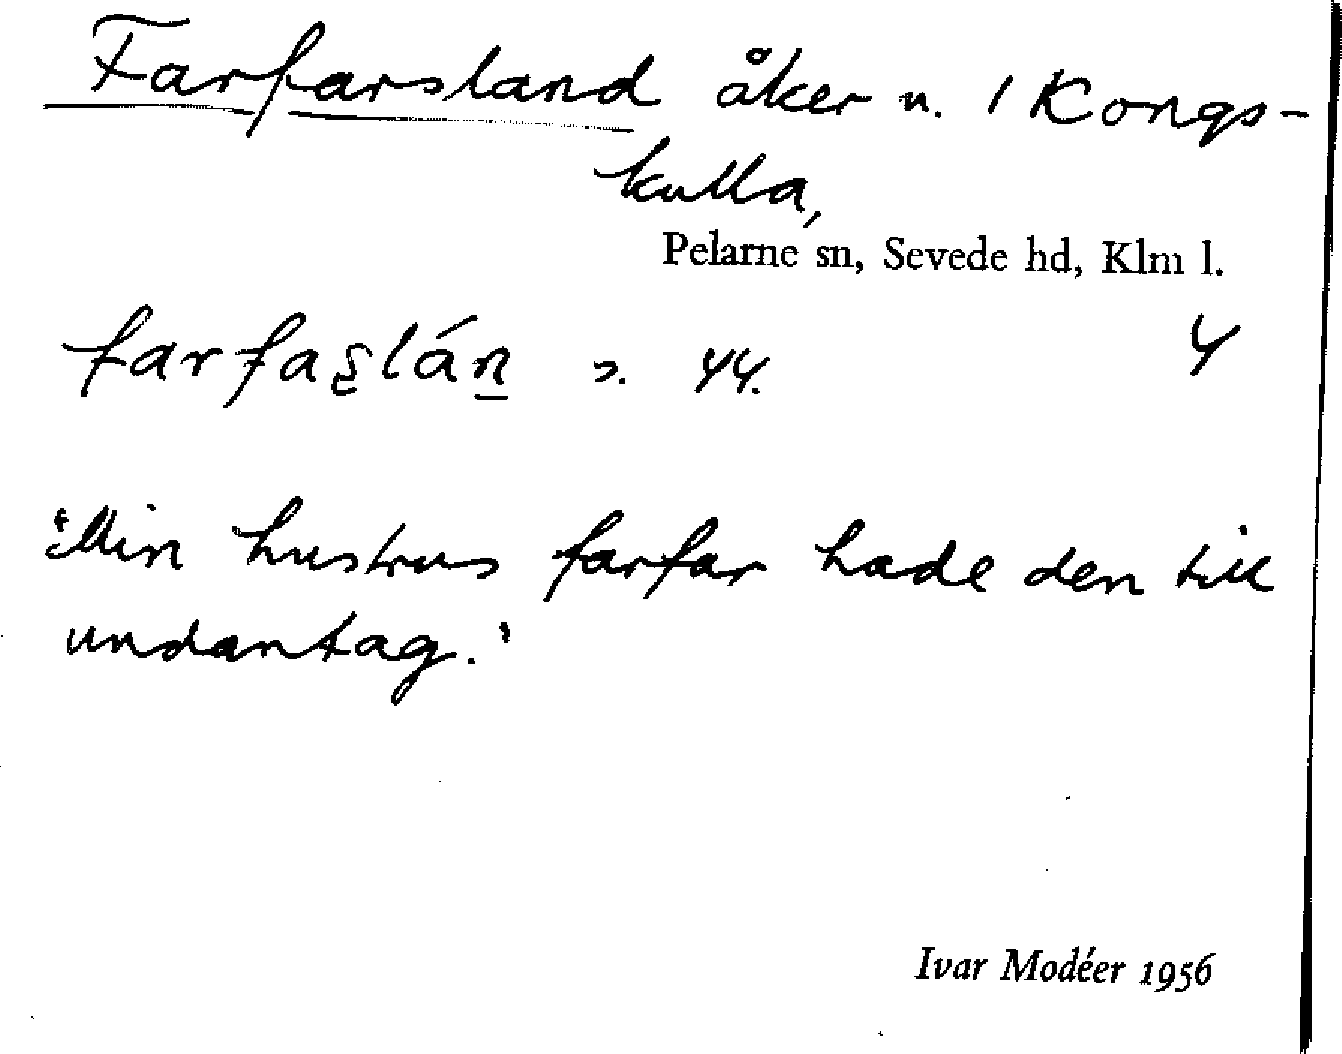 Farfarsland åker n. / Kongs-
kulla,
Pelarne sn, Sevede hd, Klm l.
farfas̱lán̠ s. 44. 4
'Min hustrus farfar hade den till
undantag.'
Ivar Modéer 1956